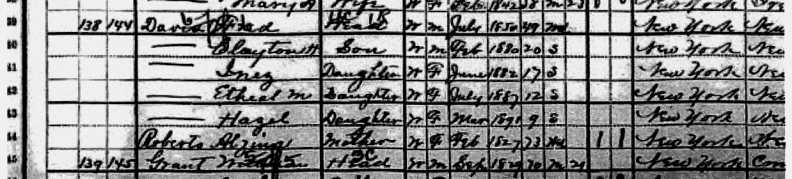 Mary A Wife W F Feb 1842 58 M 23
138 144 Davis Head W M July 1850 49 Wd New York New
Clayton H Son W M Feb 1880 20 S New York New
Inez Daughter W F June 1882 17 S New York New
Ethel M Daughter W F July 1887 12 S New York New
Hazel Daughter W F Mar 1891 9 S New York New
Roberts Mother W F Feb 1827 73 Wd 1 1 New York
139 145 Grant Head W M Sep 1829 70 M New York